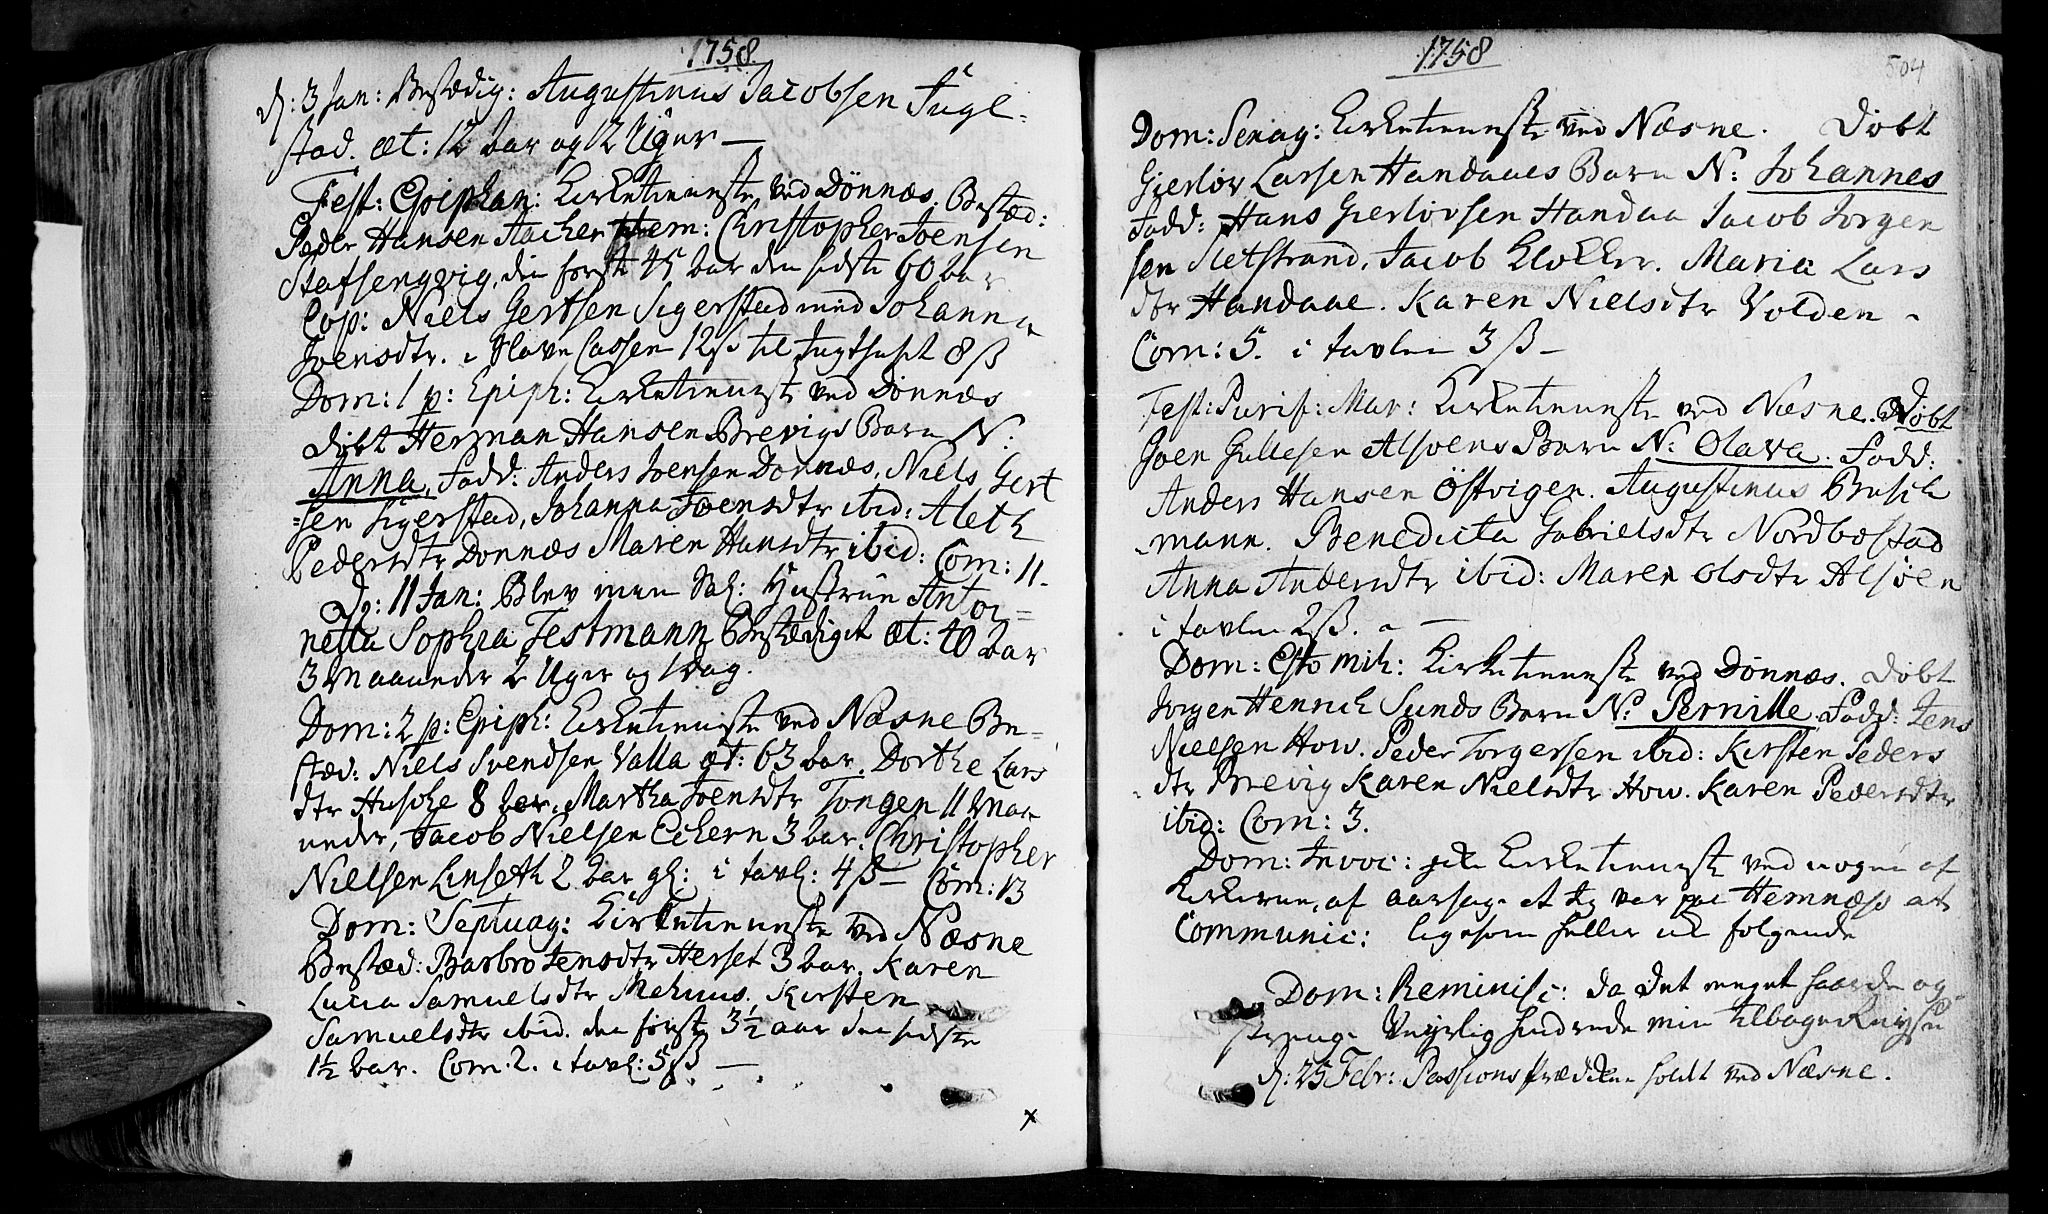 1758
d: 3 Jan: Bestædig: Augustinus Jacobsen Fugl-
stad. æt: 12 aar og 12 Uger —
Fest: Epiphan: Kirketienneste ved Dönnæs. Bestæd:
Peder Hansen Aaker Christopher Joensen
Stafsengvig, din første 45 aar den sidste 60 aar
Cop: Niels Gertsen Sigerstad med Johanna
Joensdtr. i Slave Cassen 12ß til Tugthuset 8 ß
Dom: 1 p: Epiph: Kirketienneste ved Dönnæs
döbt Herman Hansen Brevigs Barn N:
Anna, Fadd: Anders Joensen Dönnæs, Niels Gert
=sen Sigerstad, Johanna Joensdtr ibid: Aleth
Pedersdtr Dönnæs Maren Hansdtr ibid: Com: 11.
D: 11 Jan: Blev min Sal: Hustrue Antoi=
netta Sophia Testmann Bestædiget æt: 40 aar
3 Maaneder 2 Uger og 1 Dag.
Dom: 2 p: Epiph: Kirketienneste ved Næsne Be=
stæd: Niels Svendsen Valla æt: 63 aar. Dorthe Lars
dtr Husche 8 aar. Martha Joensdtr Tongen 11 Maa
neder, Jacob Nielsen Eckern 3 aar. Christopher
Nielsen Linseth 2 aar gl: i tavl: 4 ß — Com: 13
Dom: Septuag: Kirketienneste ved Næsne
Bestæd: Barbro Jensdtr Herset 3 aar. Karen
Lucia Samuelsdtr Mehuus. Kirsten
Samuelsdtr ibid. den første 3½ aar den sidste
1½ aar. Com: 2. i tavl: 5 ß —
x
1758
504
Dom: Sexag: Kirketienneste ved Næsne. Döbt
Gierlöv Larsen Handaaes Barn N: Johannes
Fadd: Hans Gierlövsen Handaa Jacob Jörgen
sen Sletstrand, Jacob Klocker. Maria Lars
dtr Handaae. Karen Nielsdtr Volden -
Com: 5. i tavlen 3 ß —
Fest: Purif: Mar: Kirketienneste ved Næsne. Döbt
Joen Gullesen Alsöens Barn N: Olava. Fadd:
Anders Hansen Östvigen. Augustinus Busch
=mann. Benedicta Gabrielsdtr Nordbostad
Anna Andersdtr ibid: Maren Olsdtr Alsöen
i tavlen 2 ß. —
Dom: Esto mih: Kirketienneste ved Dönnæs. Döbt
Jörgen Henrich Sunds Barn N: Pernille. Fadd: Jens
Nielsen How. Peder Torgersen ibid: Kirsten Peders
dtr Brevig Karen Nielsdtr How. Karen Pedersdtr
ibid: Com: 3.
Dom: Invoc: Kirketienneste ved nogen af
Kirkerne, af aarsage at Jeg var paa Hemnæss at
Communic: ligesom heller ei følgende
Dom: Reminisc: da det meget haarde og
strenge Veyrlig hindrede min Tilbage Reyse
d: 25 Febr: Passions Prædiken holdt ved Næsne.